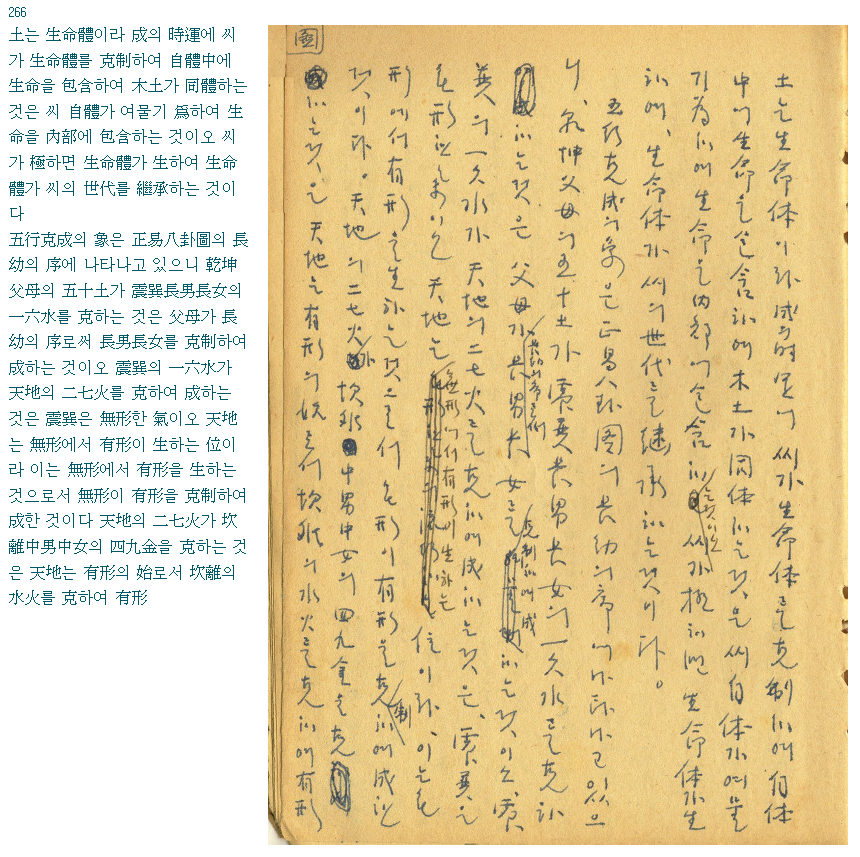 266
土는 生命體이라 成의 時運에 씨
가 生命體를 克制하여 自體中에
生命을 包含하여 木土가 同體하는
것은 씨 自體가 여물기 爲하여 生
命을 內部에 包含하는 것이오 씨
가 極하면 生命體가 生하여 生命
體가 씨의 世代를 繼承하는 것이
다
五行克成의 象은 正易八卦圖의 長
幼의 序에 나타나고 있으니 乾坤
父母의 五十土가 震巽長男長女의
一六水를 克하는 것은 父母가 長
幼의 序로써 長男長女를 克制하여
成하는 것이오 震巽의 一六水가
天地의 二七火를 克하여 成하는
것은 震巽은 無形한 氣이오 天地
는 無形에서 有形이 生하는 位이
라 이는 無形에서 有形을 生하는
것으로서 無形이 有形을 克制하여
成한 것이다 天地의 二七火가 坎
離中男中女의 四九金을 克하는 것
은 天地는 有形의 始로서 坎離의
水火를 克하여 有形
圖
土는 生命体이라 成의 時運에 씨가 生命体를 克制하여 自体
中에 生命을 包含하여 木土가 同体하는 것은 씨 自体가 여물
기 為하여 生命을 內部에 包含하는 것이오 씨가 極하면 生命体가 生
하여, 生命体가 씨의 世代를 継承하는 것이다。
五行克成의 象은 正易八卦圖의 長幼의 序에 나타나고 있으
니, 乾坤父母의 五十土가 震巽長男長女의 一六水를 克하
는 것은 父母가 長幼의 序로써 長男長女를 克制하여 成하는 것이오, 震
巽의 一六水가 天地의 二七火를 克하여 成하는 것은, 震巽은
無形한 氣이오 天地는 無形에서 有形이 生하는 位이라, 이는 無
形에서 有形을 生하는 것으로서 無形이 有形을 克制하여 成한
것이다。 天地의 二七火가 坎離中男中女의 四九金을 克
하는 것은 天地는 有形의 始로서 坎離의 水火를 克하여 有形